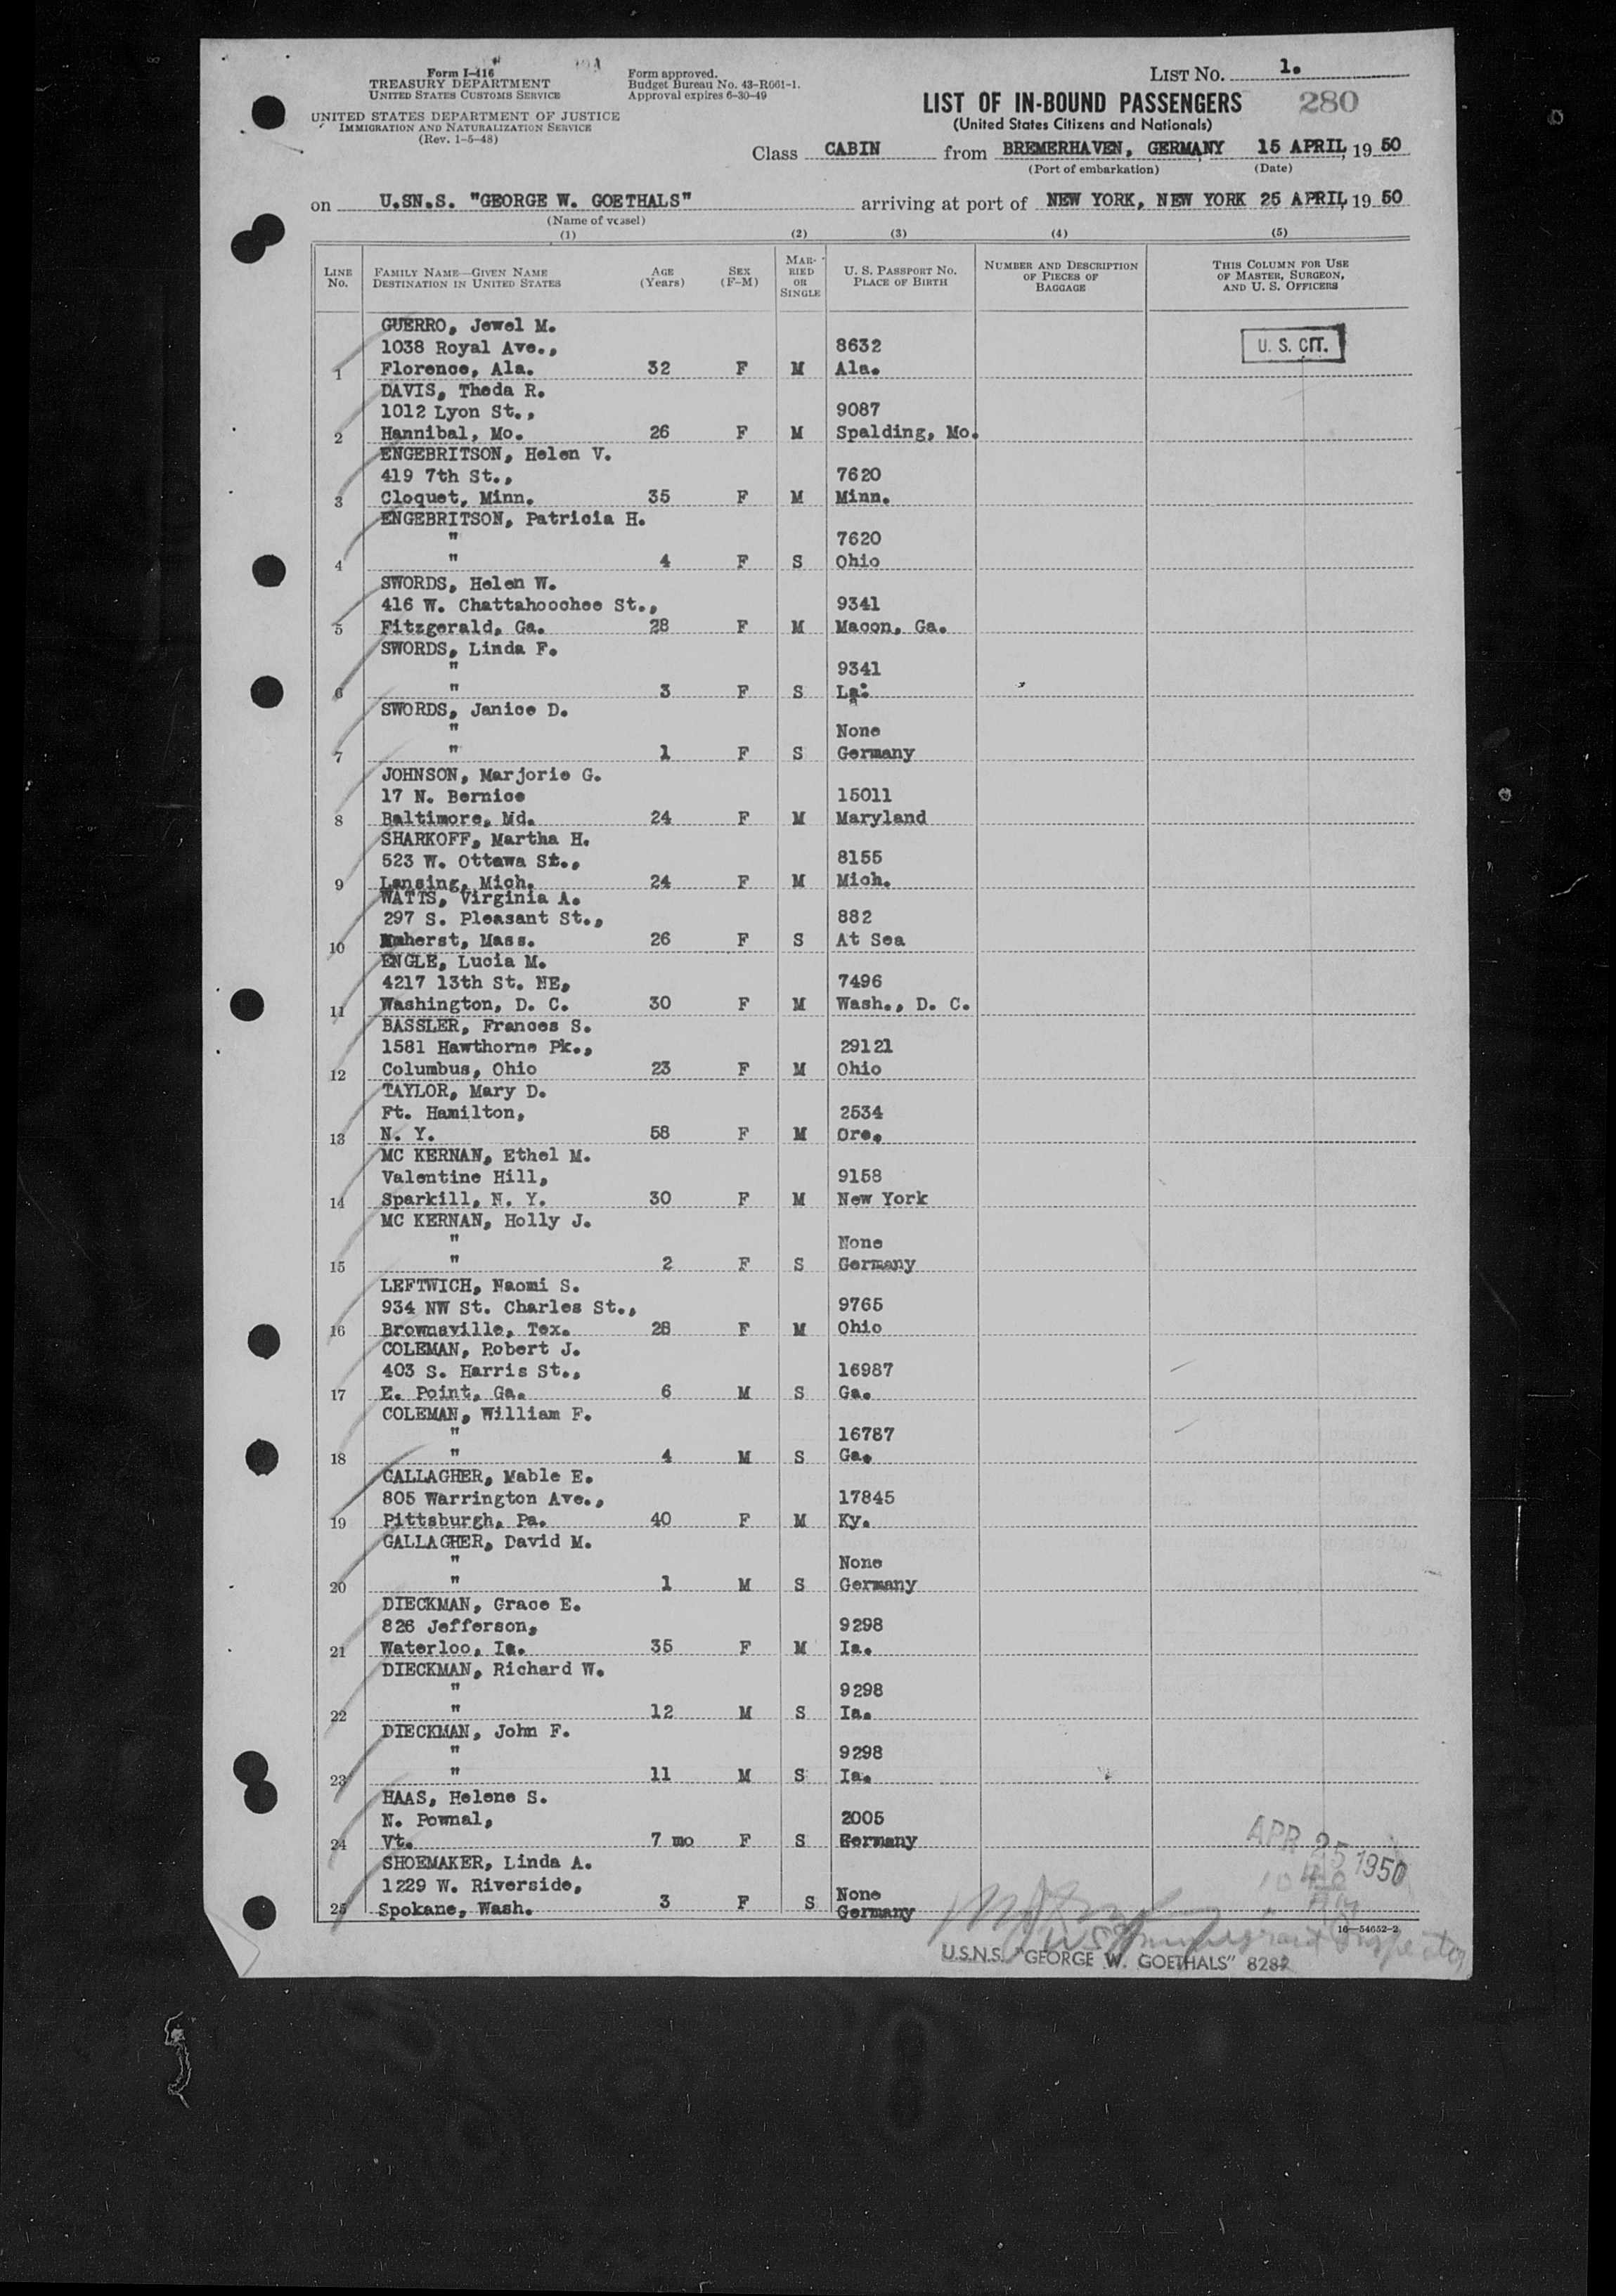 Form I-416
TREASURY DEPARTMENT
UNITED STATES CUSTOMS SERVICE
UNITED STATES DEPARTMENT OF JUSTICE
IMMIGRATION AND NATURALIZATION SERVICE
(Rev. 1-5-48)
Form approved.
Budget Bureau No. 43-R061-1.
Approval expires 6-30-49
LIST NO. 1.
LIST OF IN-BOUND PASSENGERS 280
(United States Citizens and Nationals)
Class CABIN from BREMERHAVEN, GERMANY 15 APRIL, 19 50
(Port of embarkation) (Date)
on U.SN.S. "GEORGE W. GOETHALS" arriving at port of NEW YORK, NEW YORK 25 APRIL, 19 50
(Name of vessel)
(1) (2) (3) (4) (5)
LINE NO. FAMILY NAME—GIVEN NAME DESTINATION IN UNITED STATES AGE (Years) SEX (F-M) MARRIED OR SINGLE U. S. PASSPORT NO. PLACE OF BIRTH NUMBER AND DESCRIPTION OF PIECES OF BAGGAGE THIS COLUMN FOR USE OF MASTER, SURGEON, AND U. S. OFFICERS
GUERRO, Jewel M.
1038 Royal Ave., 8632 U. S. CIT.
1 Florence, Ala. 32 F M Ala.
DAVIS, Theda R.
1012 Lyon St., 9087
2 Hannibal, Mo. 26 F M Spalding, Mo.
ENGEBRITSON, Helen V.
419 7th St., 7620
3 Cloquet, Minn. 35 F M Minn.
ENGEBRITSON, Patricia H.
" 7620
4 " 4 F S Ohio
SWORDS, Helen W.
416 W. Chattahoochee St., 9341
5 Fitzgerald, Ga. 28 F M Macon, Ga.
SWORDS, Linda F.
" 9341
6 " 3 F S La.
SWORDS, Janice D.
" None
7 " 1 F S Germany
JOHNSON, Marjorie G.
17 N. Bernice 15011
8 Baltimore, Md. 24 F M Maryland
SHARKOFF, Martha H.
523 W. Ottawa St., 8155
9 Lansing, Mich. 24 F M Mich.
WATTS, Virginia A.
297 S. Pleasant St., 882
10 Amherst, Mass. 26 F S At Sea
ENGLE, Lucia M.
4217 13th St. NE, 7496
11 Washington, D. C. 30 F M Wash., D. C.
BASSLER, Frances S.
1581 Hawthorne Pk., 29121
12 Columbus, Ohio 23 F M Ohio
TAYLOR, Mary D.
Ft. Hamilton, 2534
13 N. Y. 58 F M Ore.
MC KERNAN, Ethel M.
Valentine Hill, 9158
14 Sparkill, N. Y. 30 F M New York
MC KERNAN, Holly J.
" None
15 " 2 F S Germany
LEFTWICH, Naomi S.
934 NW St. Charles St., 9765
16 Brownsville, Tex. 28 F M Ohio
COLEMAN, Robert J.
403 S. Harris St., 16987
17 E. Point, Ga. 6 M S Ga.
COLEMAN, William F.
" 16787
18 " 4 M S Ga.
GALLAGHER, Mable E.
805 Warrington Ave., 17845
19 Pittsburgh, Pa. 40 F M Ky.
GALLAGHER, David M.
" None
20 " 1 M S Germany
DIECKMAN, Grace E.
826 Jefferson, 9298
21 Waterloo, Ia. 35 F M Ia.
DIECKMAN, Richard W.
" 9298
22 " 12 M S Ia.
DIECKMAN, John F.
" 9298
23 " 11 M S Ia.
HAAS, Helene S.
N. Pownal, 2005
24 Vt. 7 mo F S Germany
SHOEMAKER, Linda A.
1229 W. Riverside, None
25 Spokane, Wash. 3 F S Germany
APR 25 1950
16—54652-2
U S Immigrant Inspector
U.S.N.S. "GEORGE W. GOETHALS" 8282